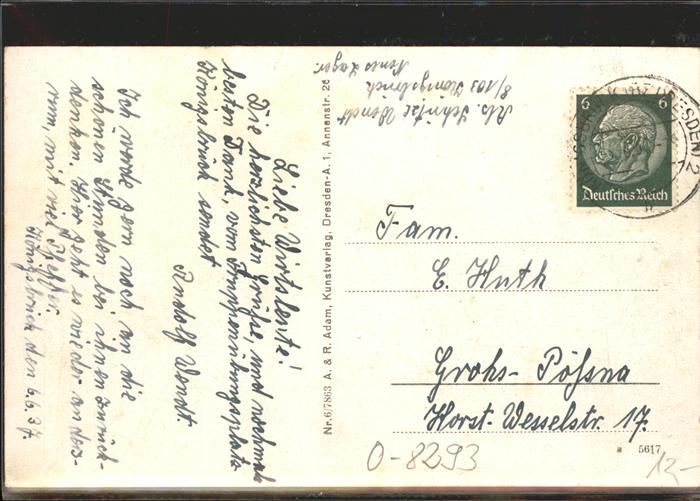 Liebe Wirtsleute!
Die herzlichsten Grüße, und nochmals
besten Dank, vom Truppenübungsplatz
Königsbrück sendet
Rudolf Wendt.
Ich werde gern noch an die
schönen Stunden bei ihnen zurück-
denken. Hier geht es wieder anders-
rum, mit viel Pfeffer.
Königsbrück den 6.6.37.
Abs. Schütze Wendt
8/103 Königsbrück
Neues Lager.
Nr. 6/7863 A. & R. Adam, Kunstverlag, Dresden-A. 1, Annenstr. 26
6 6
Deutsches Reich
Fam.
E. Huth
Grohs-Pößna
Horst-Wesselstr. 17.
a 5617
O-8293
12-